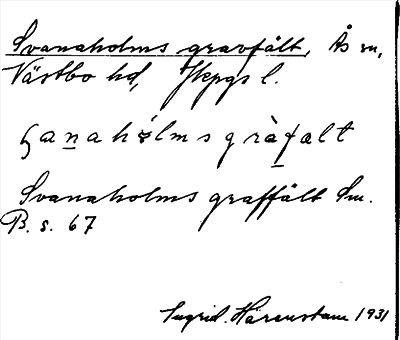 Svanaholms gravfält, Ås sn,
Västbo hd, Jkpgs l.
ɧanahólmsgràfalt
Svanaholms graffält Sm.
B. s. 67
Ingrid Härenstam 1931